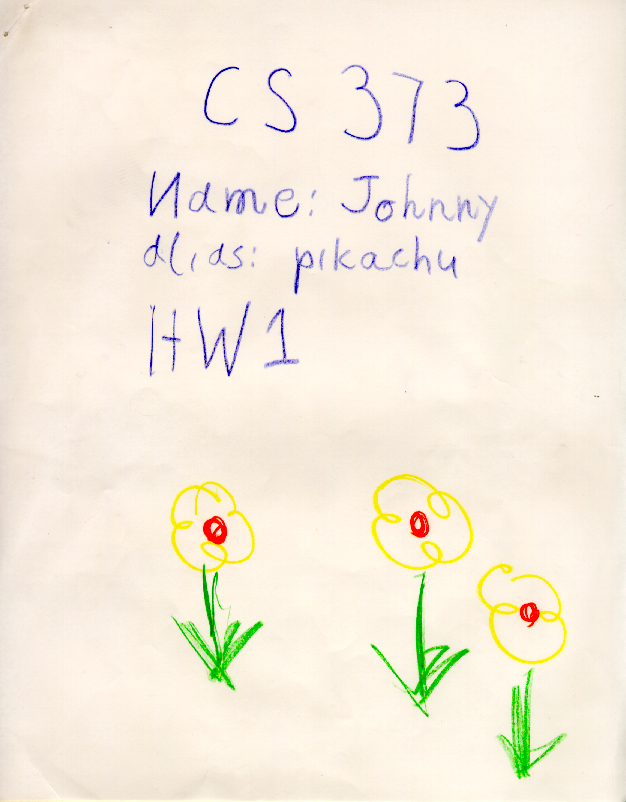 CS 373
Name: Johnny
alias: pikachu
HW1